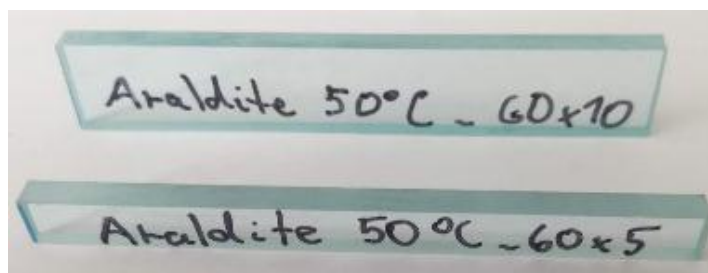 Araldite 50°C - 60x10
Araldite 50°C - 60x5